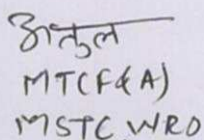 अतुल
MTC(F&A)
MSTC WRO